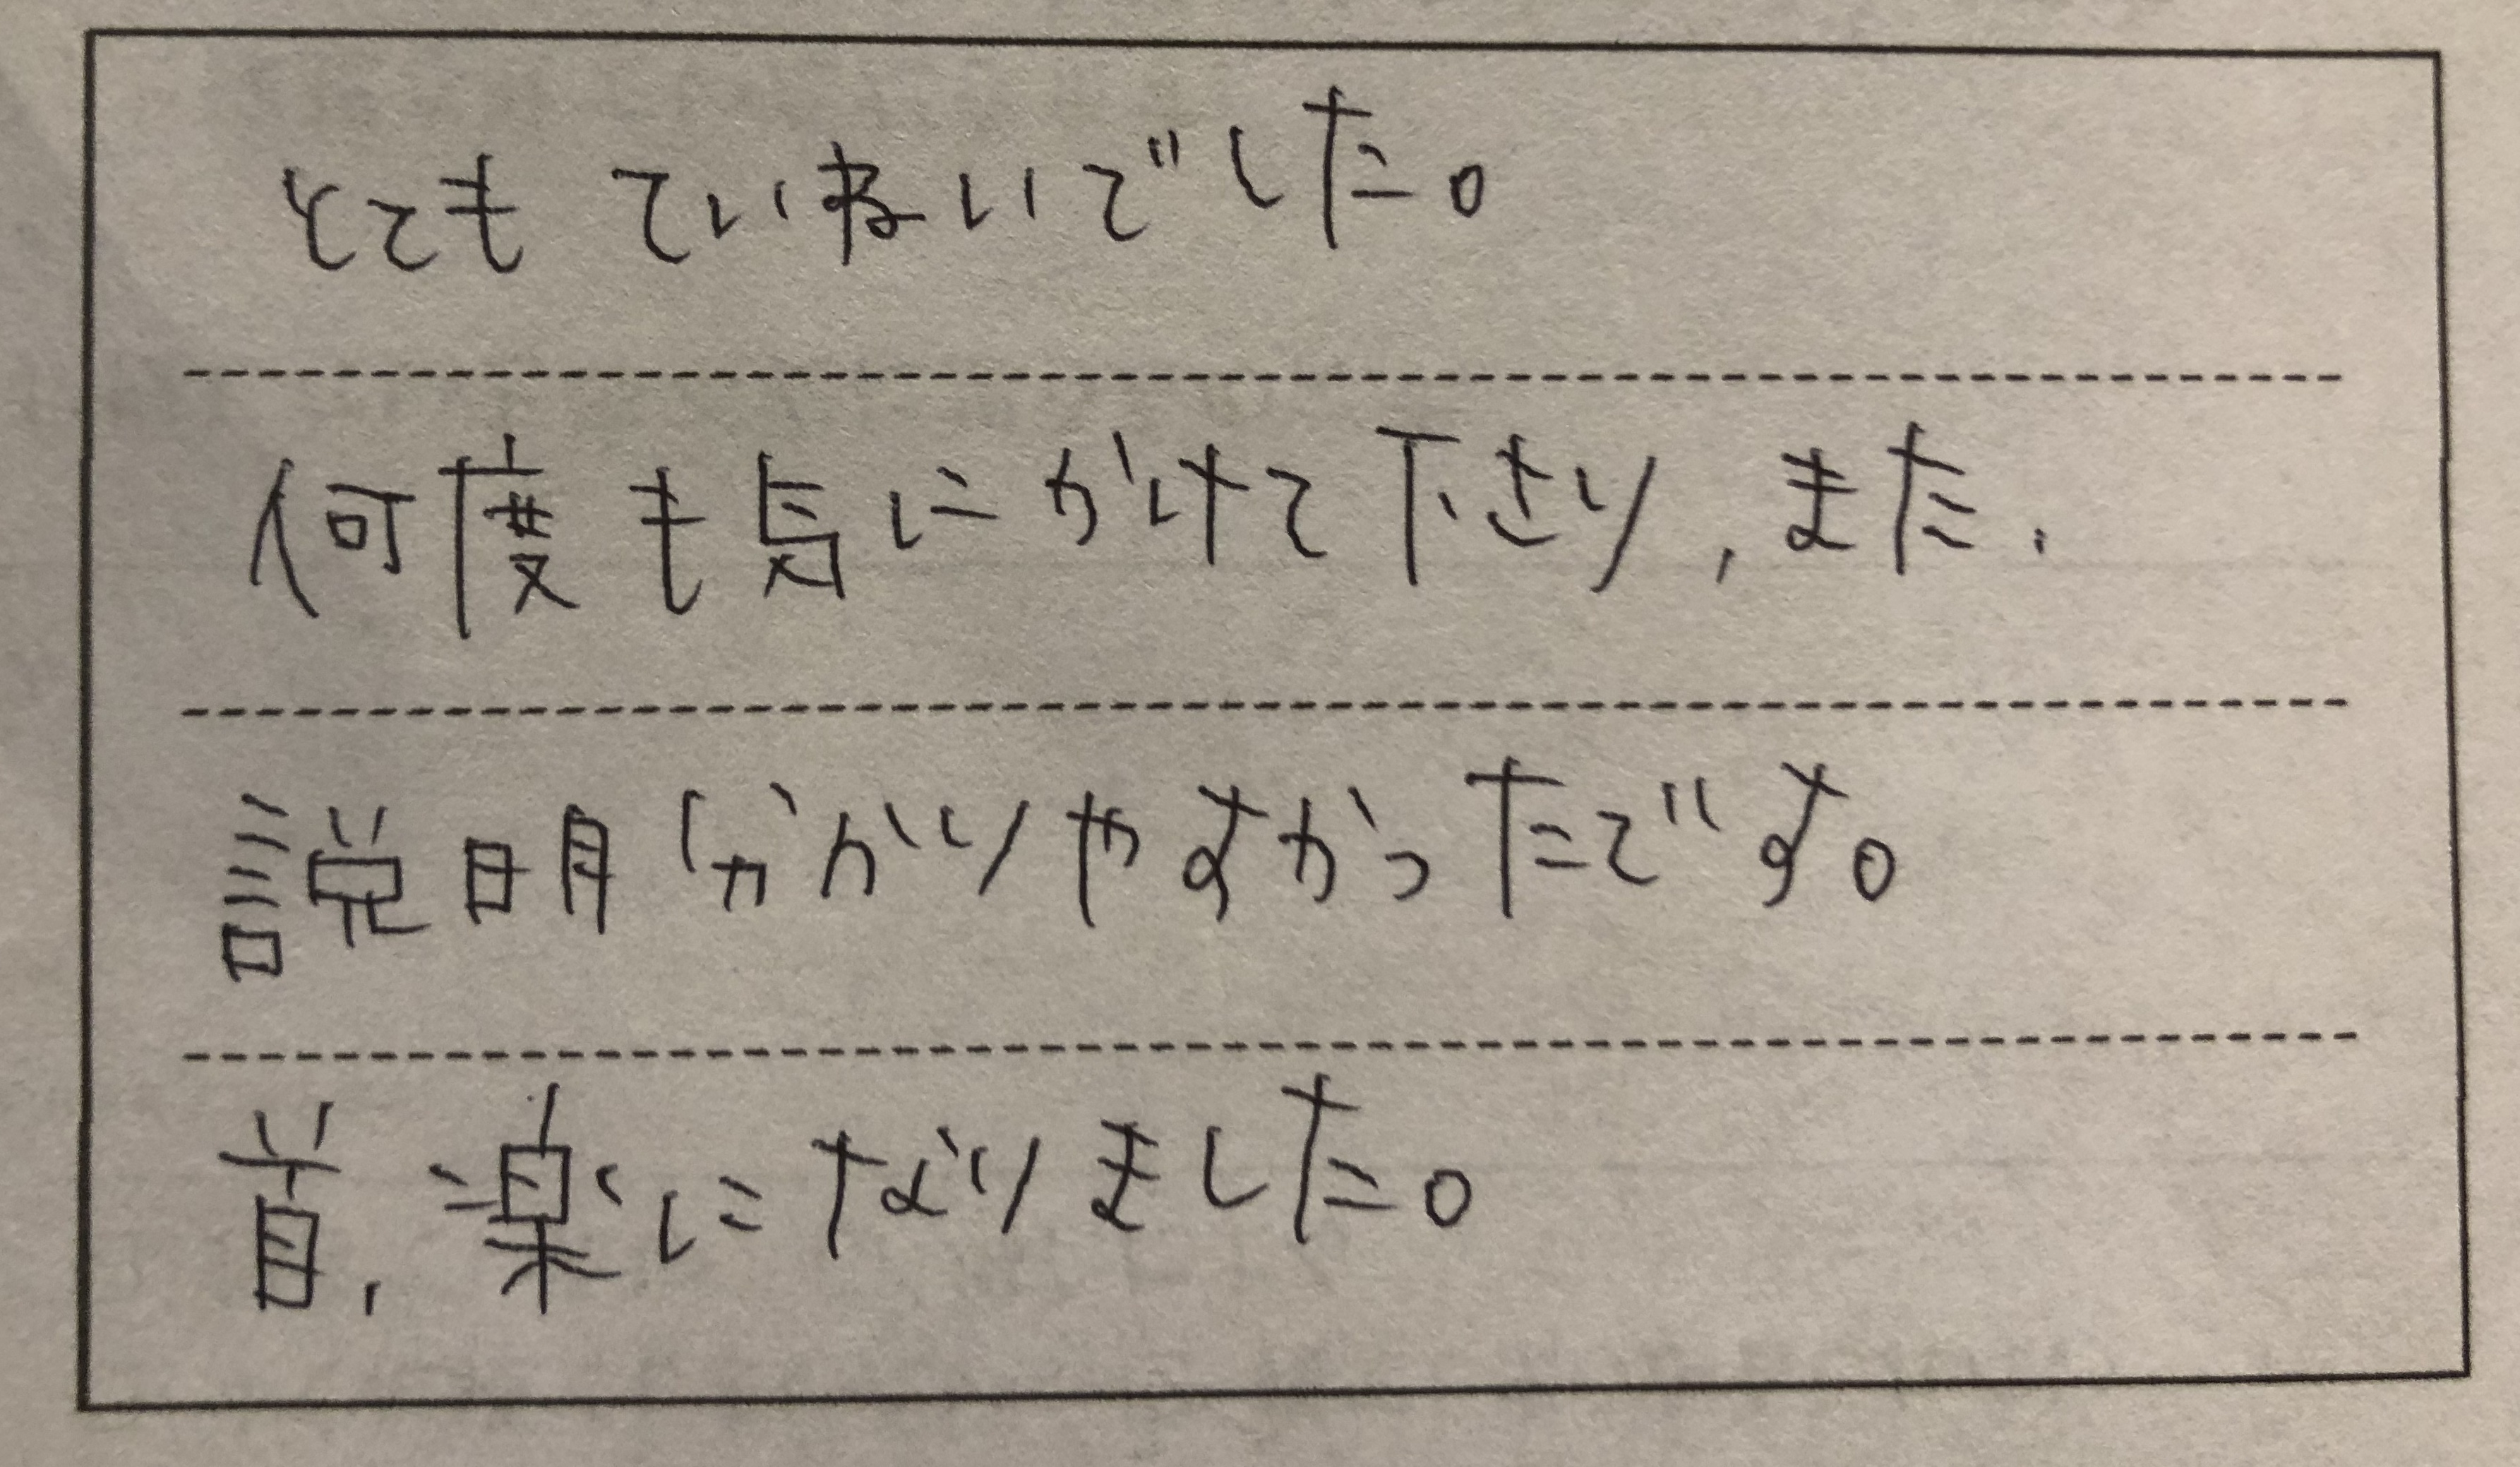 とても ていねいでした。
何度も気にかけて下さり、また、
説明分かりやすかったです。
首、楽になりました。